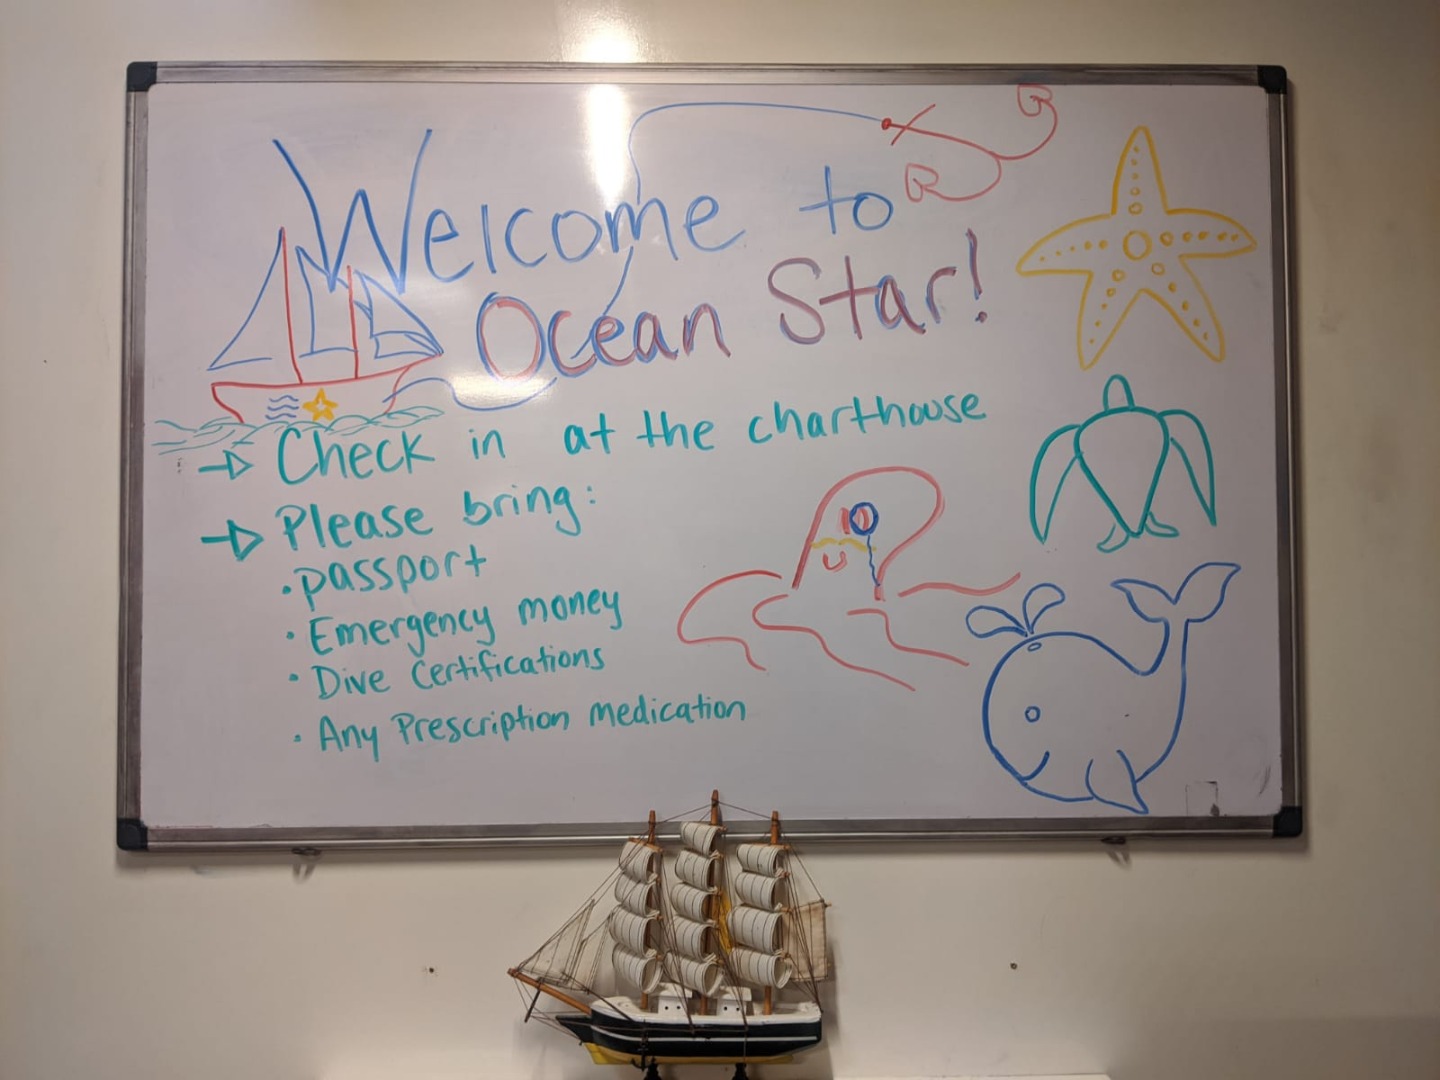 Welcome to
Ocean Star!
→ Check in at the charthouse
→ Please bring:
· passport
· Emergency money
· Dive Certifications
· Any Prescription Medication